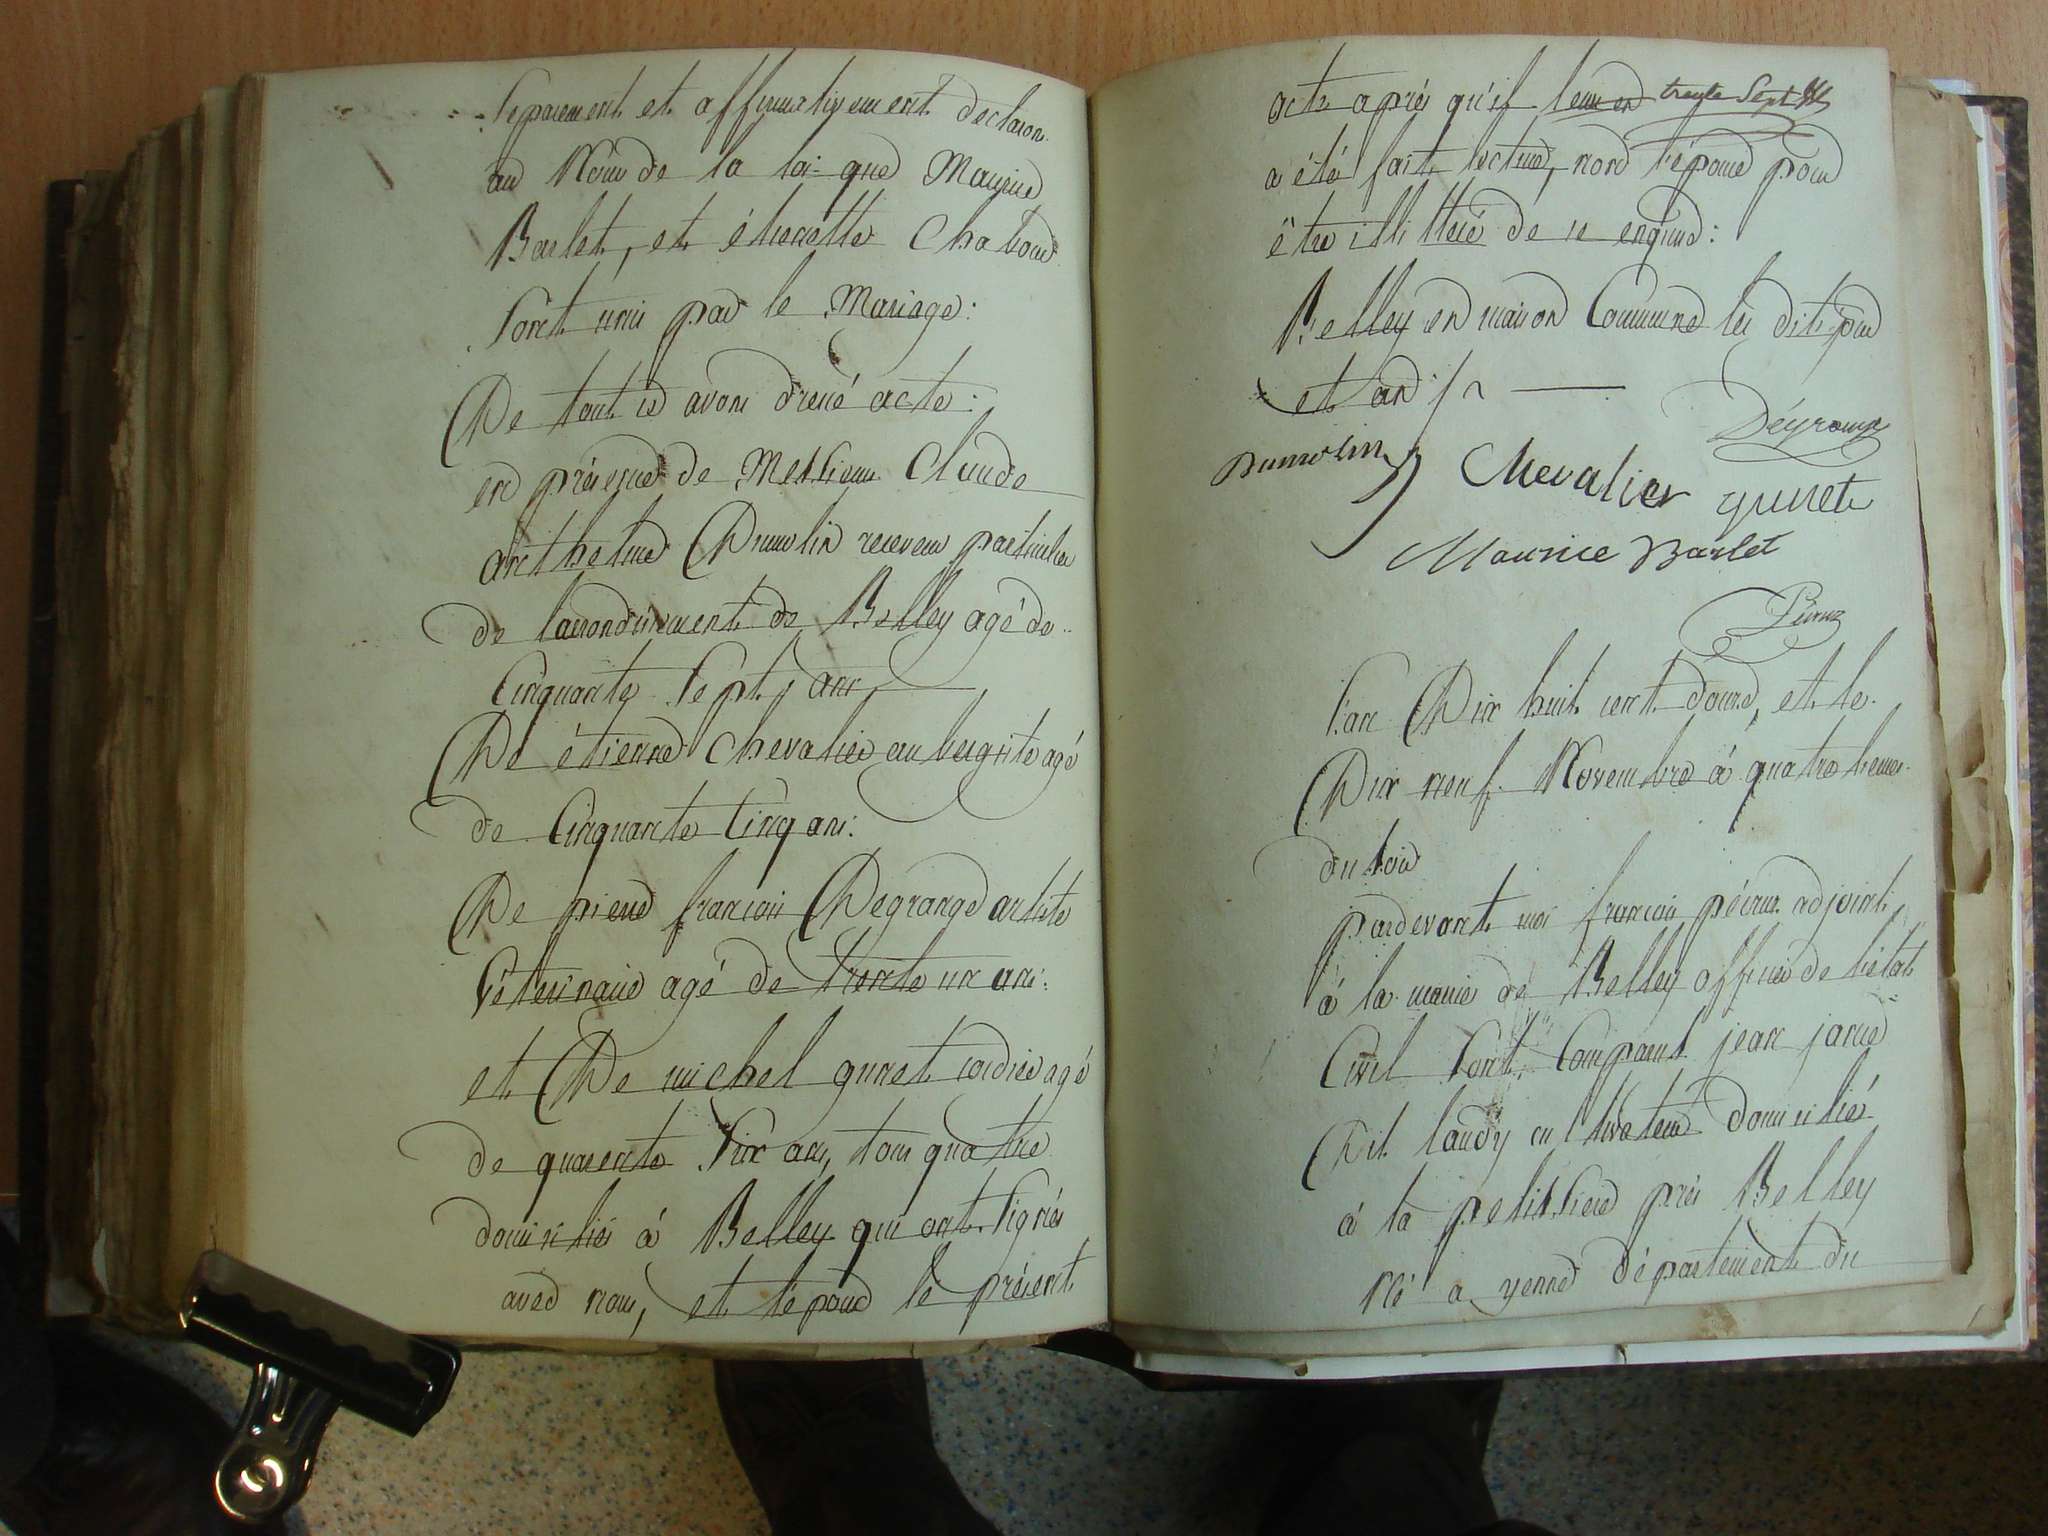 separement et affirmativement declaron
au Nom de la loi que Maurice
Barlet, et étienette Chaboud
sont unis par le Mariage:
De tout ce avons dressé acte:
en présence de Messieurs Claude
anthelme Dumolin receveur particulier
de larrondissement de Belley agé de
Cinquante sept ans,
De étienne Chevalier aubergiste agé
de Cinquante cinq ans:
De pierre françois Degrange artiste
véterinaire agé de trente un ans:
et De michel guret cordier agé
de quarente six ans, tous quatre
domiciliés à Belley qui ont signés
avec nous, et lépoux le présent
acte après qu'il leur en trente sept
a été fait lecture, non l'épouse pour
être illitteré de ce enquise:
Belley en maison Commune les dits jour
et an
Dégrange
Dumolin
Chevalier guret
Maurice Barlet
Péroux
l'an Dix huit cent douze, et le
Dix neuf Novembre à quatre heures
du soir
pardevant moi françois péroux adjoint
à la mairie de Belley officier de l'état
Civil sont comparus jean jacque
Dit laudy cultivateur domicilié
à la petitliere près Belley
Né a yenne département du